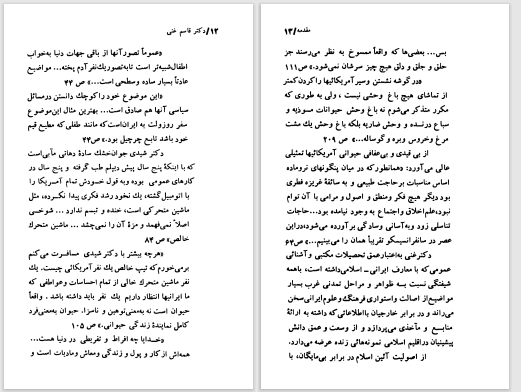 ۱۲/دکتر قاسم غنی
«عموماً تصور آنها از باقی جهات دنیا به‌خواب
اطفال شبیه‌تر است تا به‌تصور یك نفر آدم پخته... مواضیع
عادتاً بسیار ساده وسطحی است...» ص ۴۴
«این موضوع خود را کوچك دانستن در مسائل
سیاسی آنها هم صادق است... بهترین مثال این موضوع
سفر روزولت به ایران است که مانند طفلی که مطیع قیم
خود باشد تابع چرچیل بود.» ص۴۴
دکتر شیدی جوان خشك سادهٔ دهاتی مآبی است
که با اینکهٔ پنج سال پیش دیپلم طب گرفته و پنج سال در
کارهای عمومی بوده و به قول خودش تمام آمریکا را
با اتومبیل گشته، یك نخود رشد فکری پیدا نکرده، مثل
ماشین متحرکی است، خنده و تبسم ندارد ... شوخی
اصلاً نمی‌فهمد و مزهٔ آن را نمی‌چشد ... ماشین متحرك
خالص» ص ۸۴
«هرچه بیشتر با دکتر شیدی مسافرت می‌کنم
برمی‌خورم که تیپ خالص یك نفر آمریکائی چیست. یك
نفر ماشین متحرك خالی از تمام احساسات و عواطفی که
ما ایرانیها انتظار داریم یك نفر باید داشته باشد . واقعاً
حیوان است نه به‌معنی توهین و ناسزا. حیوان به‌معنی فرد
کامل نمایندهٔ زندگی حیوانی.» ص ۱۰۵
«خدایا چه افراط و تفریطی در دنیا هست...
همه‌اش از کار و پول و زندگی ومعاش ومادیات است و
مقدمه/۱۳
بس... بعضی‌ها که واقعاً ممسوخ به نظر می‌رسند جز
حلق و جلق و دلق هیچ چیز سرشان نمی‌شود.» ص۱۱۱
«در گوشه نشستن وسیر آمریکائیها را کردن کمتر
از تماشای هیچ باغ وحشی نیست ، ولی به طوری که
مکرر متذکر می‌شوم نه باغ وحش حیوانات موذیه و
سباع درنده و وحش ضاریه بلکه باغ وحش یك مشت
مرغ وخروس وبره و گوساله...» ص ۲۰۹
از بی قیدی و بی‌عفافی حیوانی آمریکائیها تمثیلی
عالی می‌آورد: «همانطور که در میان پنگونهای نروماده
اساس مناسبات بر حاجت طبیعی و به سائقهٔ غریزه فطری
بود دیگر هیچ فکر ومنطق و اصول و مرامی با آن توأم
نبود، علم اخلاق واجتماع به وجود نیامده بود...حاجات
تناسلی زود و به‌آسانی وسادگی برآورده می‌شود، در این
عصر در سانفرانسیسکو تقریباً همان را می‌بینیم...» ص۹۴
دکتر غنی به‌اعتبار عمق تحصیلات مکتبی و آشنائی
عمومی که با معارف ایرانی ـ اسلامی داشته است، باهمه
شیفتگی نسبت به ظواهر و مراحل تمدنی غرب بسیار
مواضیع از اصالت واستواری فرهنگ و علوم ایرانی سخن
می‌راند و در برابر خارجیان بااطلاعاتی که داشته به ارائهٔ
منابع و مآخذی می‌پردازد و از وسعت و عمق دانش
پیشینیان دراقلیم اسلامی نمونه‌هائی زنده عرضه می‌دارد.
از اصولیت آئین اسلام در برابر بی‌مایگان، با